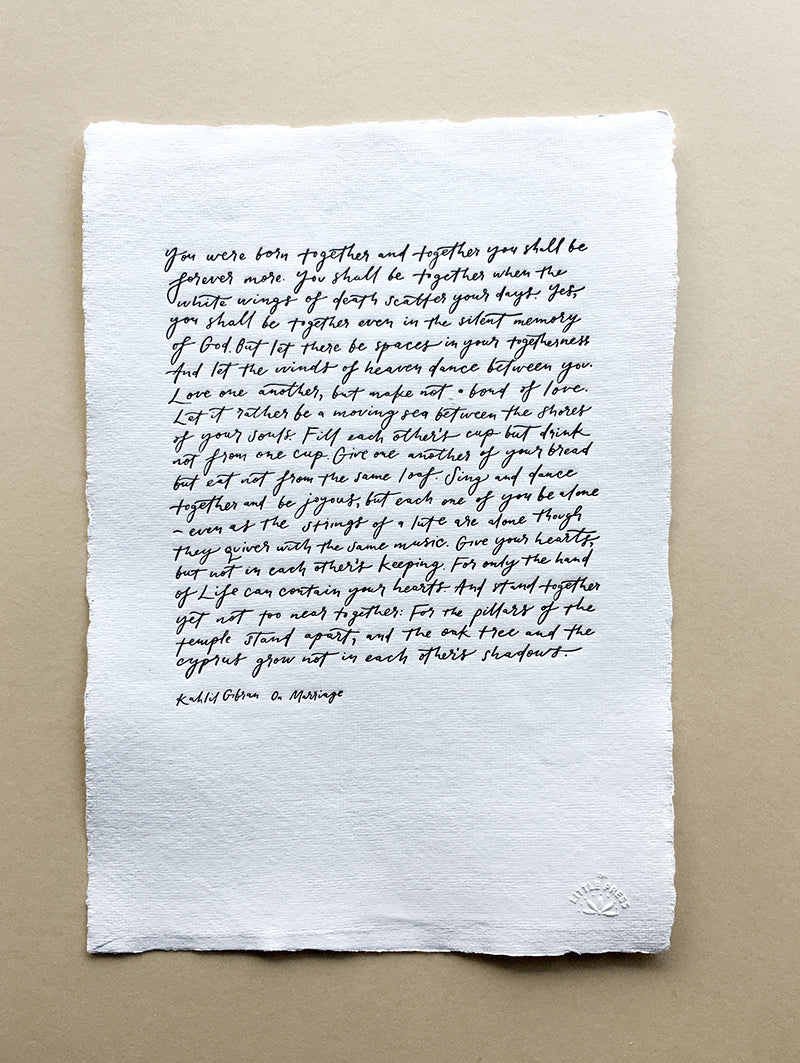 You were born together and together you shall be
forever more. You shall be together when the
white wings of death scatter your days. Yes,
you shall be together even in the silent memory
of God. But let there be spaces in your togetherness
And let the winds of heaven dance between you.
Love one another, but make not a bond of love.
Let it rather be a moving sea between the shores
of your souls. Fill each other's cup but drink
not from one cup. Give one another of your bread
but eat not from the same loaf. Sing and dance
together and be joyous, but each one of you be alone
– even as the strings of a lute are alone though
they quiver with the same music. Give your hearts,
but not in each other's keeping. For only the hand
of Life can contain your hearts. And stand together
yet not too near together: For the pillars of the
temple stand apart, and the oak tree and the
cyprus grow not in each other's shadows.
Kahlil Gibran On Marriage
LITTLE PRESS